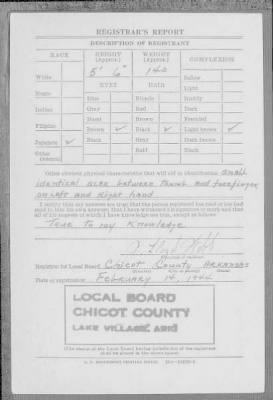 REGISTRAR'S REPORT
DESCRIPTION OF REGISTRANT
RACE HEIGHT (Approx.) WEIGHT (Approx.) COMPLEXION
5' 6" 140
White Sallow
EYES HAIR Light
Negro Blue Blonde Ruddy
Gray Red Dark
Indian Hazel Brown Freckled
Filipino Brown ✓ Black ✓ Light brown ✓
Japanese ✓ Black Gray Dark brown
Other Oriental Bald Black
Other obvious physical characteristics that will aid in identification small
identical scar between thumb and forefinger
on left and right hand
I certify that my answers are true; that the person registered has read or has had
read to him his own answers; that I have witnessed his signature or mark and that
all of his answers of which I have knowledge are true, except as follows:
True to my Knowledge
Registrar for Local Board Chicot County Arkansas
Date of registration February 14, 1942
LOCAL BOARD
CHICOT COUNTY
LAKE VILLAGE, ARK
(The stamp of the Local Board having jurisdiction of the registrant
shall be placed in the above space)
U. S. GOVERNMENT PRINTING OFFICE